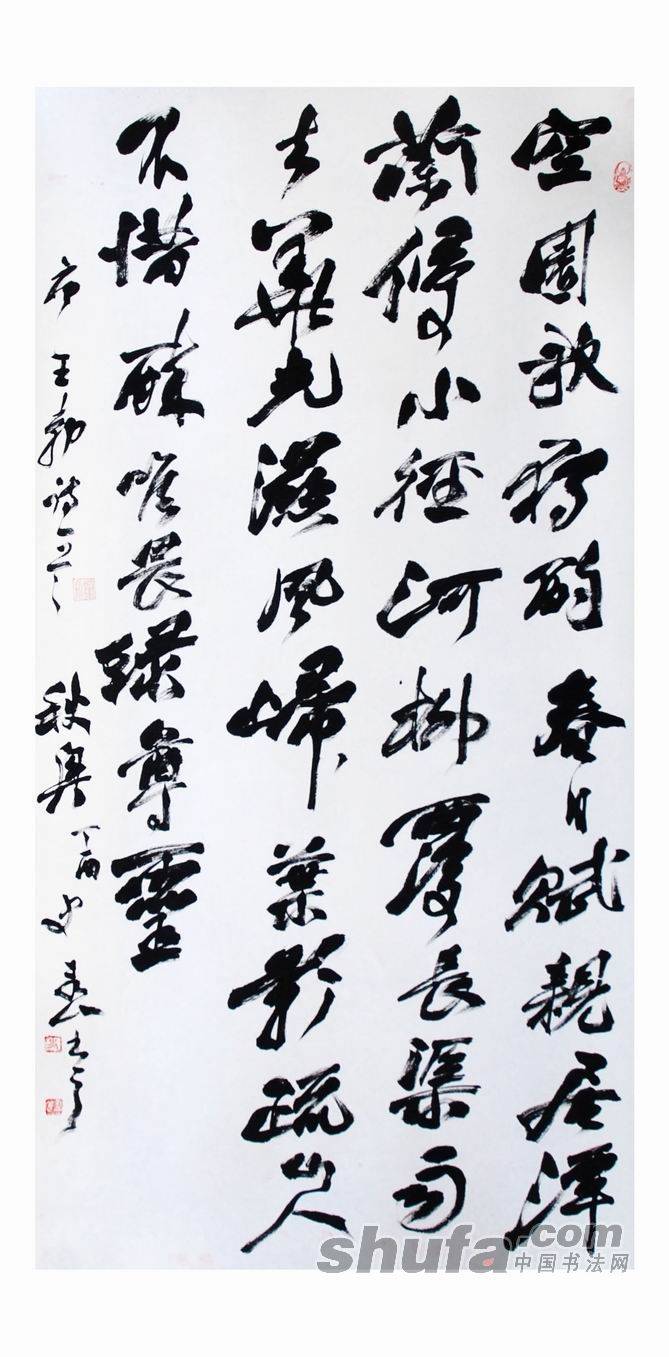 空園歌獨酌春日賦親居澤
蘭侵小徑河柳覆長渠雨
去華光濕風歸葉影疏山人
不惜醉唯畏綠尊虛
右王勃詩 丁酉
shufa.com
中国书法网